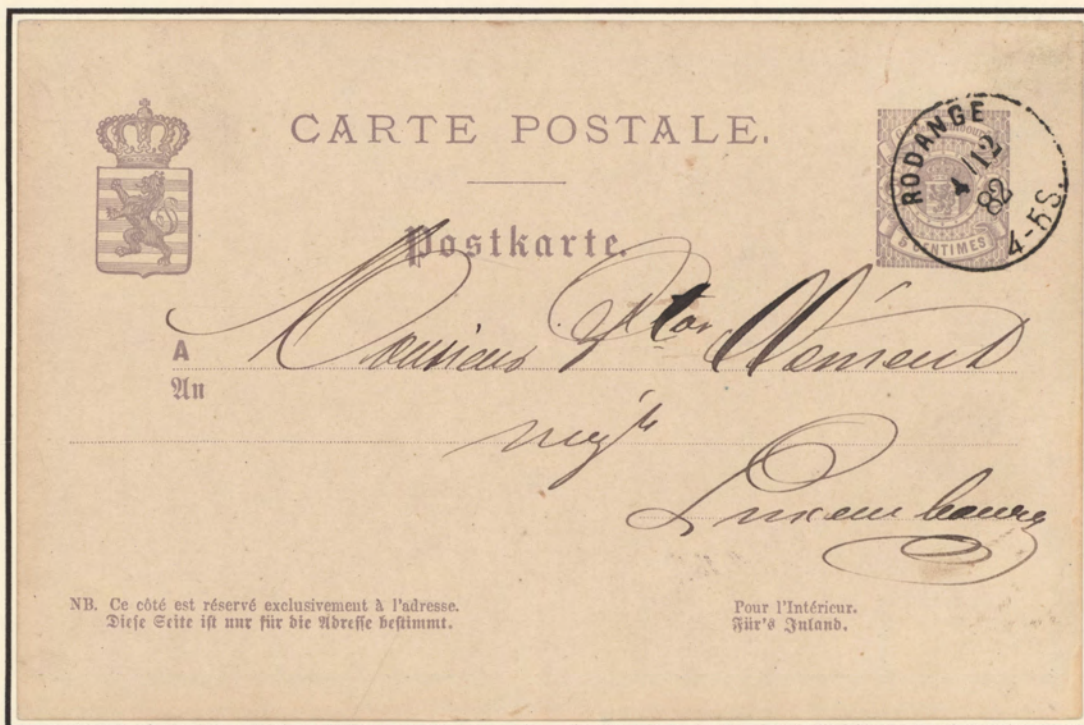 CARTE POSTALE.
RODANGE
1/12
82
4-5S.
5 CENTIMES
Postkarte.
A Monsieur Clément
An
negt
Luxembourg
NB. Ce côté est réservé exclusivement à l'adresse.
Diese Seite ist nur für die Adresse bestimmt.
Pour l'Intérieur.
Für's Inland.